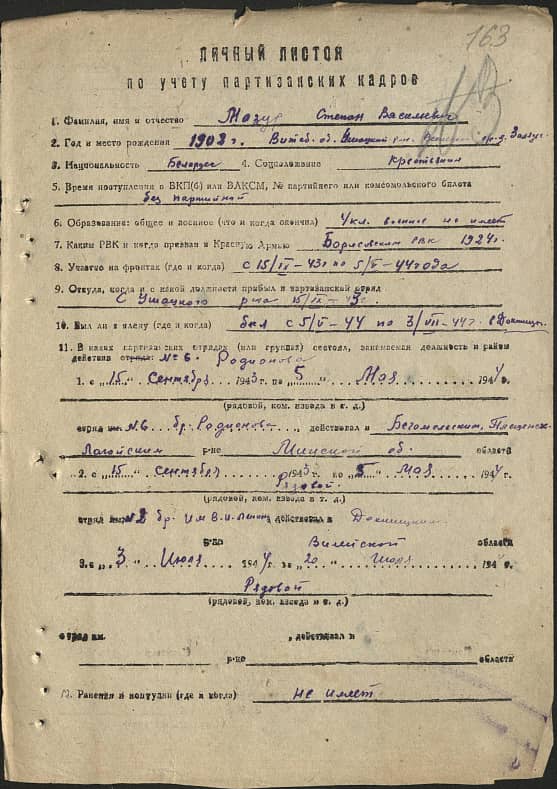 163
ЛИЧНЫЙ ЛИСТОК
по учету партизанских кадров
1. Фамилия, имя и отчество Мазур Степан Васильевич
2. Год и место рождения 1902 г. Витеб. об. Ушацкий р-н
3. Национальность Беларус 4. Соцположение Крестьянин
5. Время поступления в ВКП(б) или ВЛКСМ, № партийного или комсомольского билета
без партийной
6. Образование: общее и военное (что и когда окончил) 4 кл. военное не имеет
7. Каким РВК и когда призван в Красную Армию Борисовским РВК 1924 г.
8. Участие на фронтах (где и когда) с 15/IX-43 г по 5/V-44 года
9. Откуда, когда и с какой должности прибыл в партизанский отряд
С Ушацкого р-на 15/IX-43 г.
10. Был ли в плену (где и когда) был с 5/V-44 по 3/VII-44 г. в Докшицы
11. В каких партизанских отрядах (или группах) состоял, занимаемая должность и район
действия отряда: № 6. Родионова
1. с „15“ Сентября 1943 г. по „5“ Мая 1944 г.
(рядовой, ком. взвода и т. д.)
отряд им. № 6. бр. Родионова, действовал в Бегомльским, Плещенск.
Логойским р-не Минской об. области
2. с „15“ сентября 1943 г. по „5“ Мая 1944 г.
Рядовой.
(рядовой, ком. взвода и т. д.)
отряд им. № 2 бр. Им В.И. Ленина, действовал в Докшицким
р-не Вилейской области
3. с „3“ Июля 1944 г. по „20“ Июля 1944 г.
Рядовой
(рядовой, ком. взвода и т. д.)
отряд им. , действовал в
р-не области
12. Ранения и контузии (где и когда) не имеет